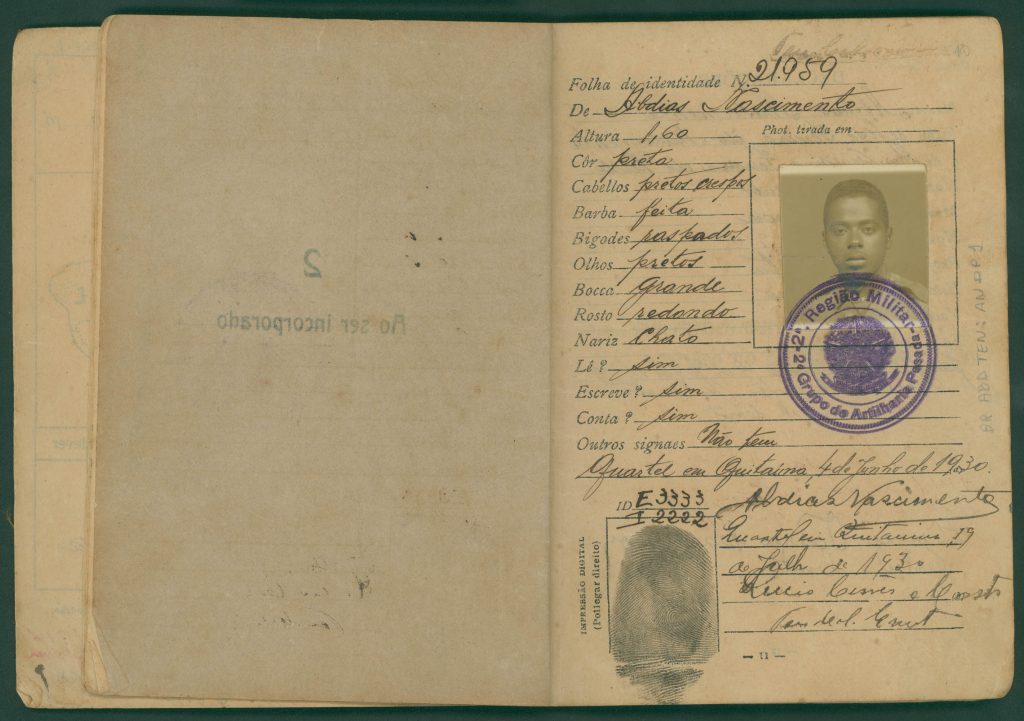 2
Ao ser incorporado
Folha de identidade N. 21.959
De Abdias Nascimento
Altura 1,60
Phot. tirada em
Côr preta
Cabellos pretos crespos
Barba feita
Bigodes raspados
Olhos pretos
Bocca grande
Rosto redondo
Nariz Chato
Lê ? sim
Escreve ? sim
Conta ? sim
Outros signaes Não tem
2ª Região Militar
2º Grupo de Artilharia Pesada
Quartel em Quitaúna, 4 de Junho de 1930.
ID E 3333
I 2222
Abdias Nascimento
Quartel em Quitauna, 19
de Julh de 1930
IMPRESSÃO DIGITAL
(Pollegar direito)
— 11 —
BR ABDTENI AN DP 1